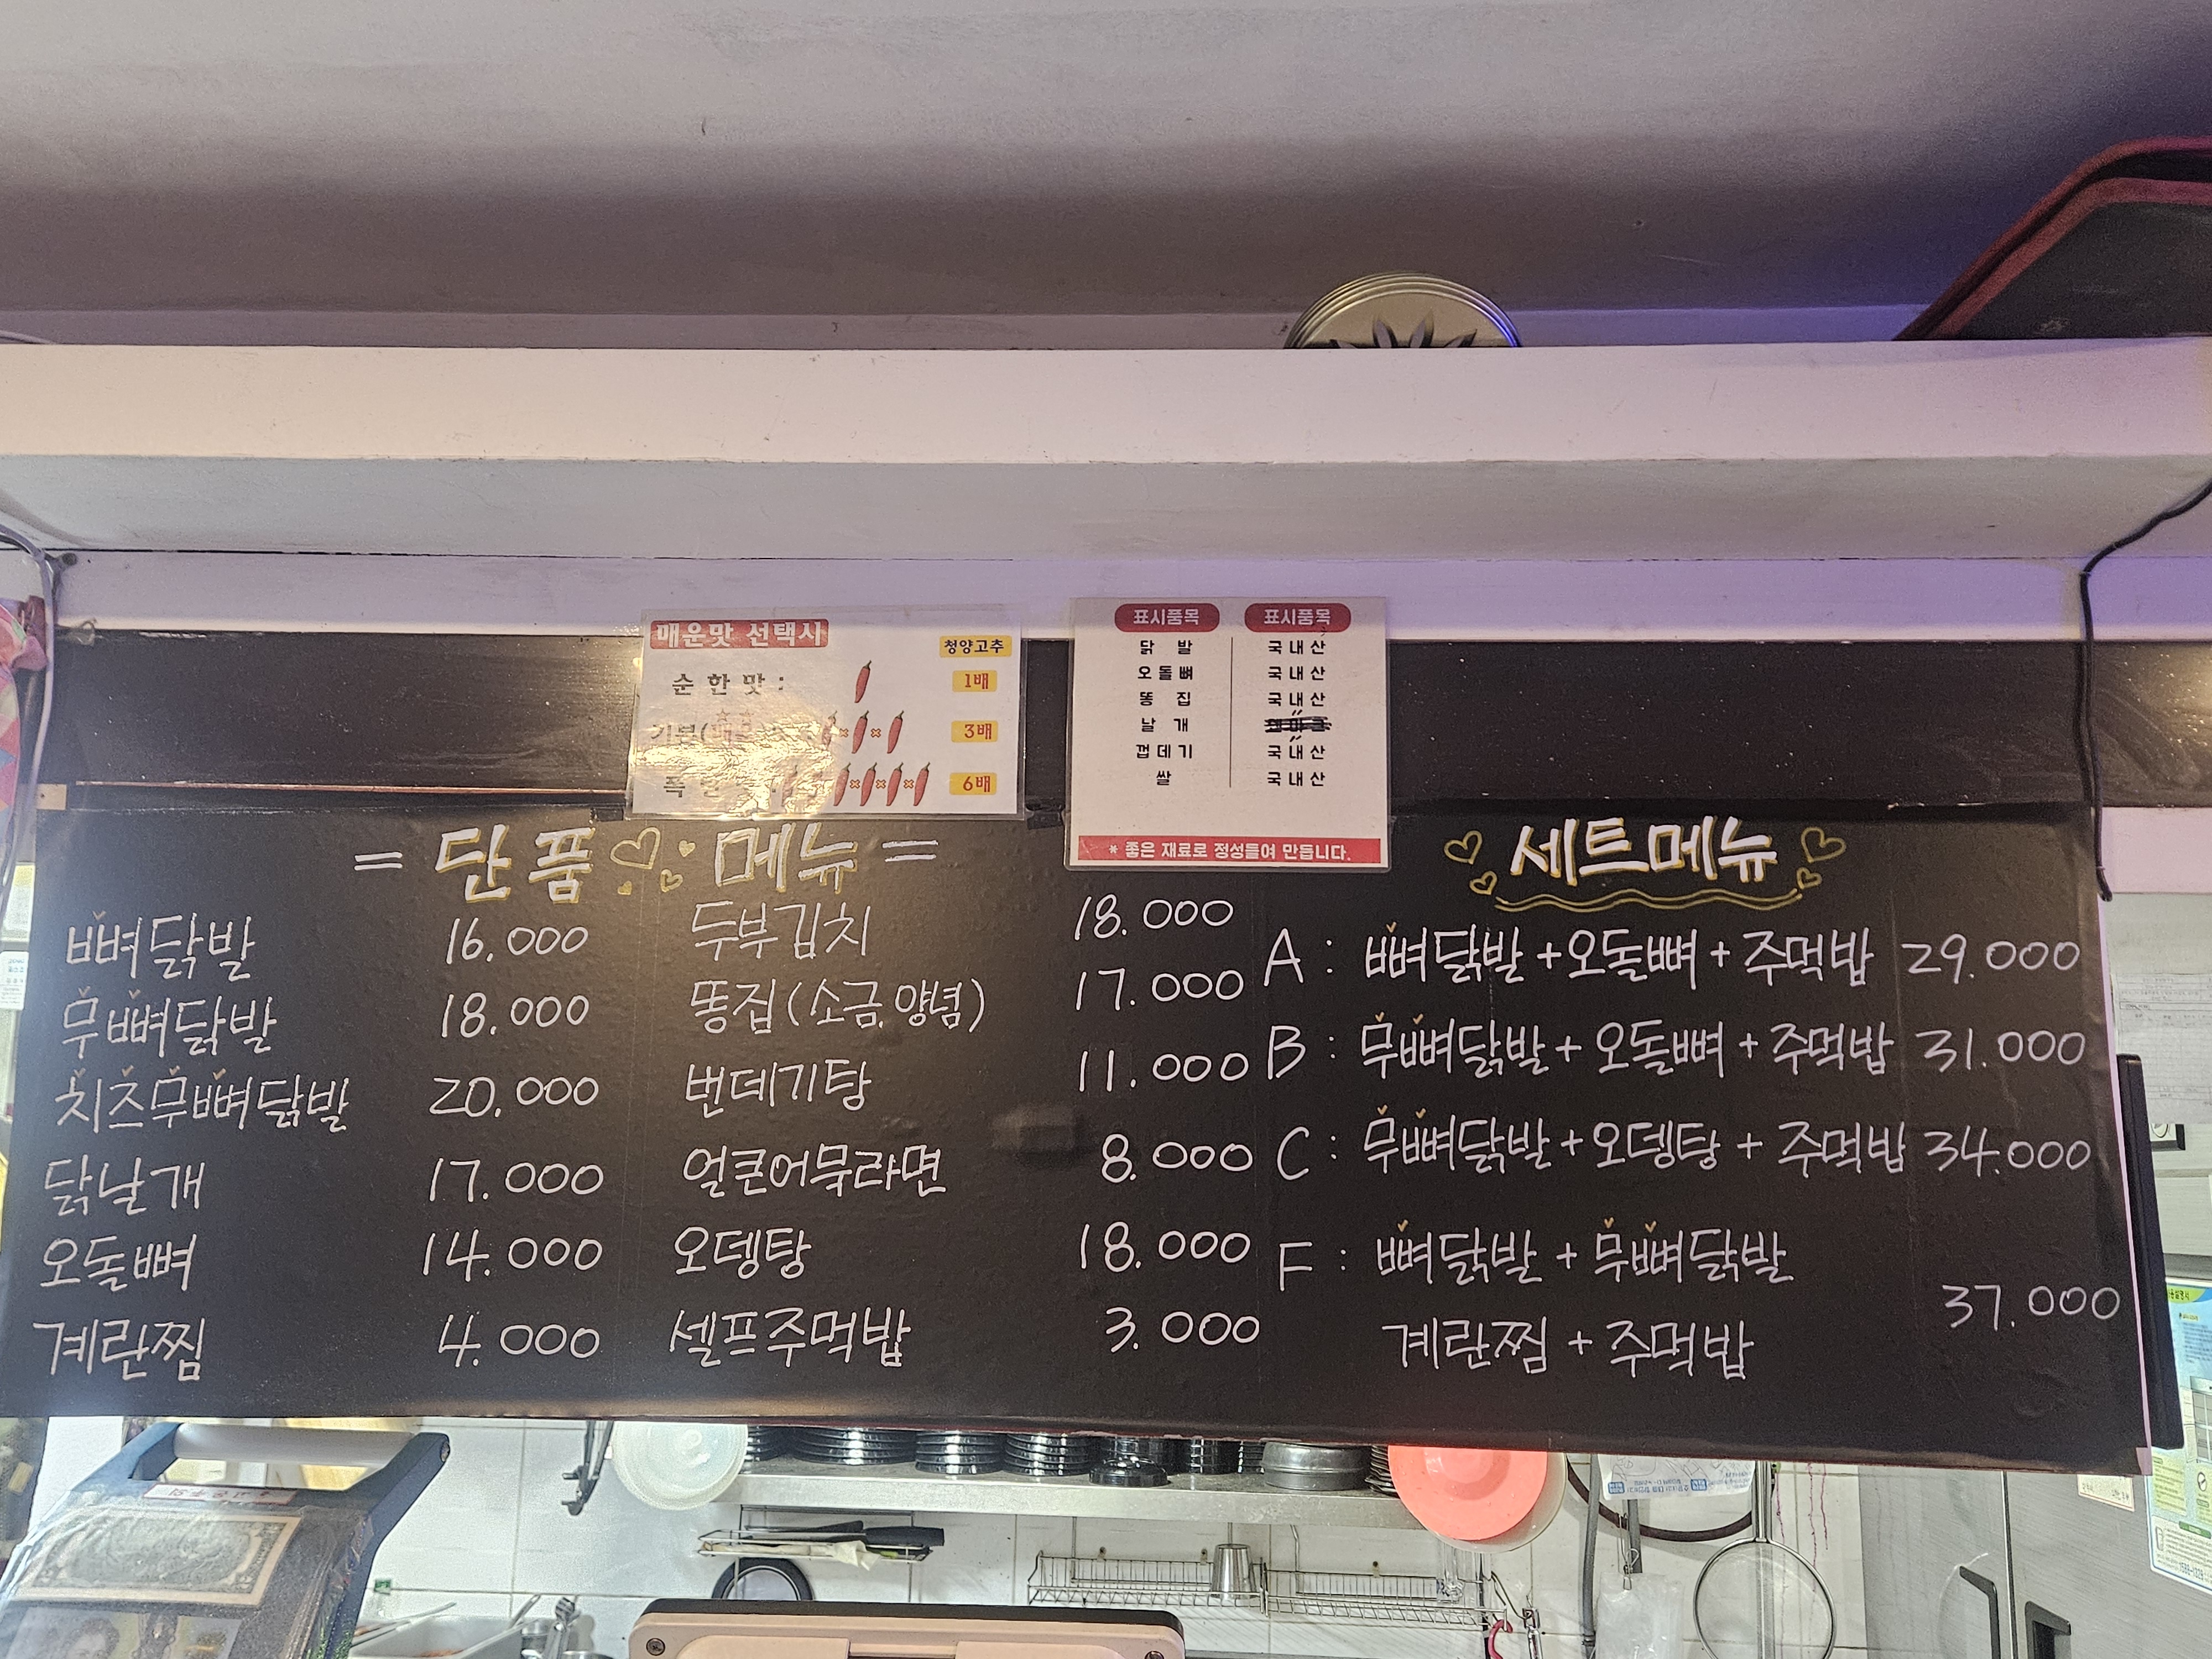 매운맛 선택시
청양고추
순한맛 : 1배
3배
6배
표시품목 표시품목
닭발 국내산
오돌뼈 국내산
똥집 국내산
날개
껍데기 국내산
쌀 국내산
* 좋은 재료로 정성들여 만듭니다.
= 단품 메뉴 =
뼈닭발 16.000
무뼈닭발 18.000
치즈무뼈닭발 20.000
닭날개 17.000
오돌뼈 14.000
계란찜 4.000
두부김치 18.000
똥집(소금,양념) 17.000
번데기탕 11.000
얼큰어묵라면 8.000
오뎅탕 18.000
셀프주먹밥 3.000
세트메뉴
A : 뼈닭발+오돌뼈+주먹밥 29.000
B : 무뼈닭발+오돌뼈+주먹밥 31.000
C : 무뼈닭발+오뎅탕+주먹밥 34.000
F : 뼈닭발+무뼈닭발
계란찜+주먹밥 37.000